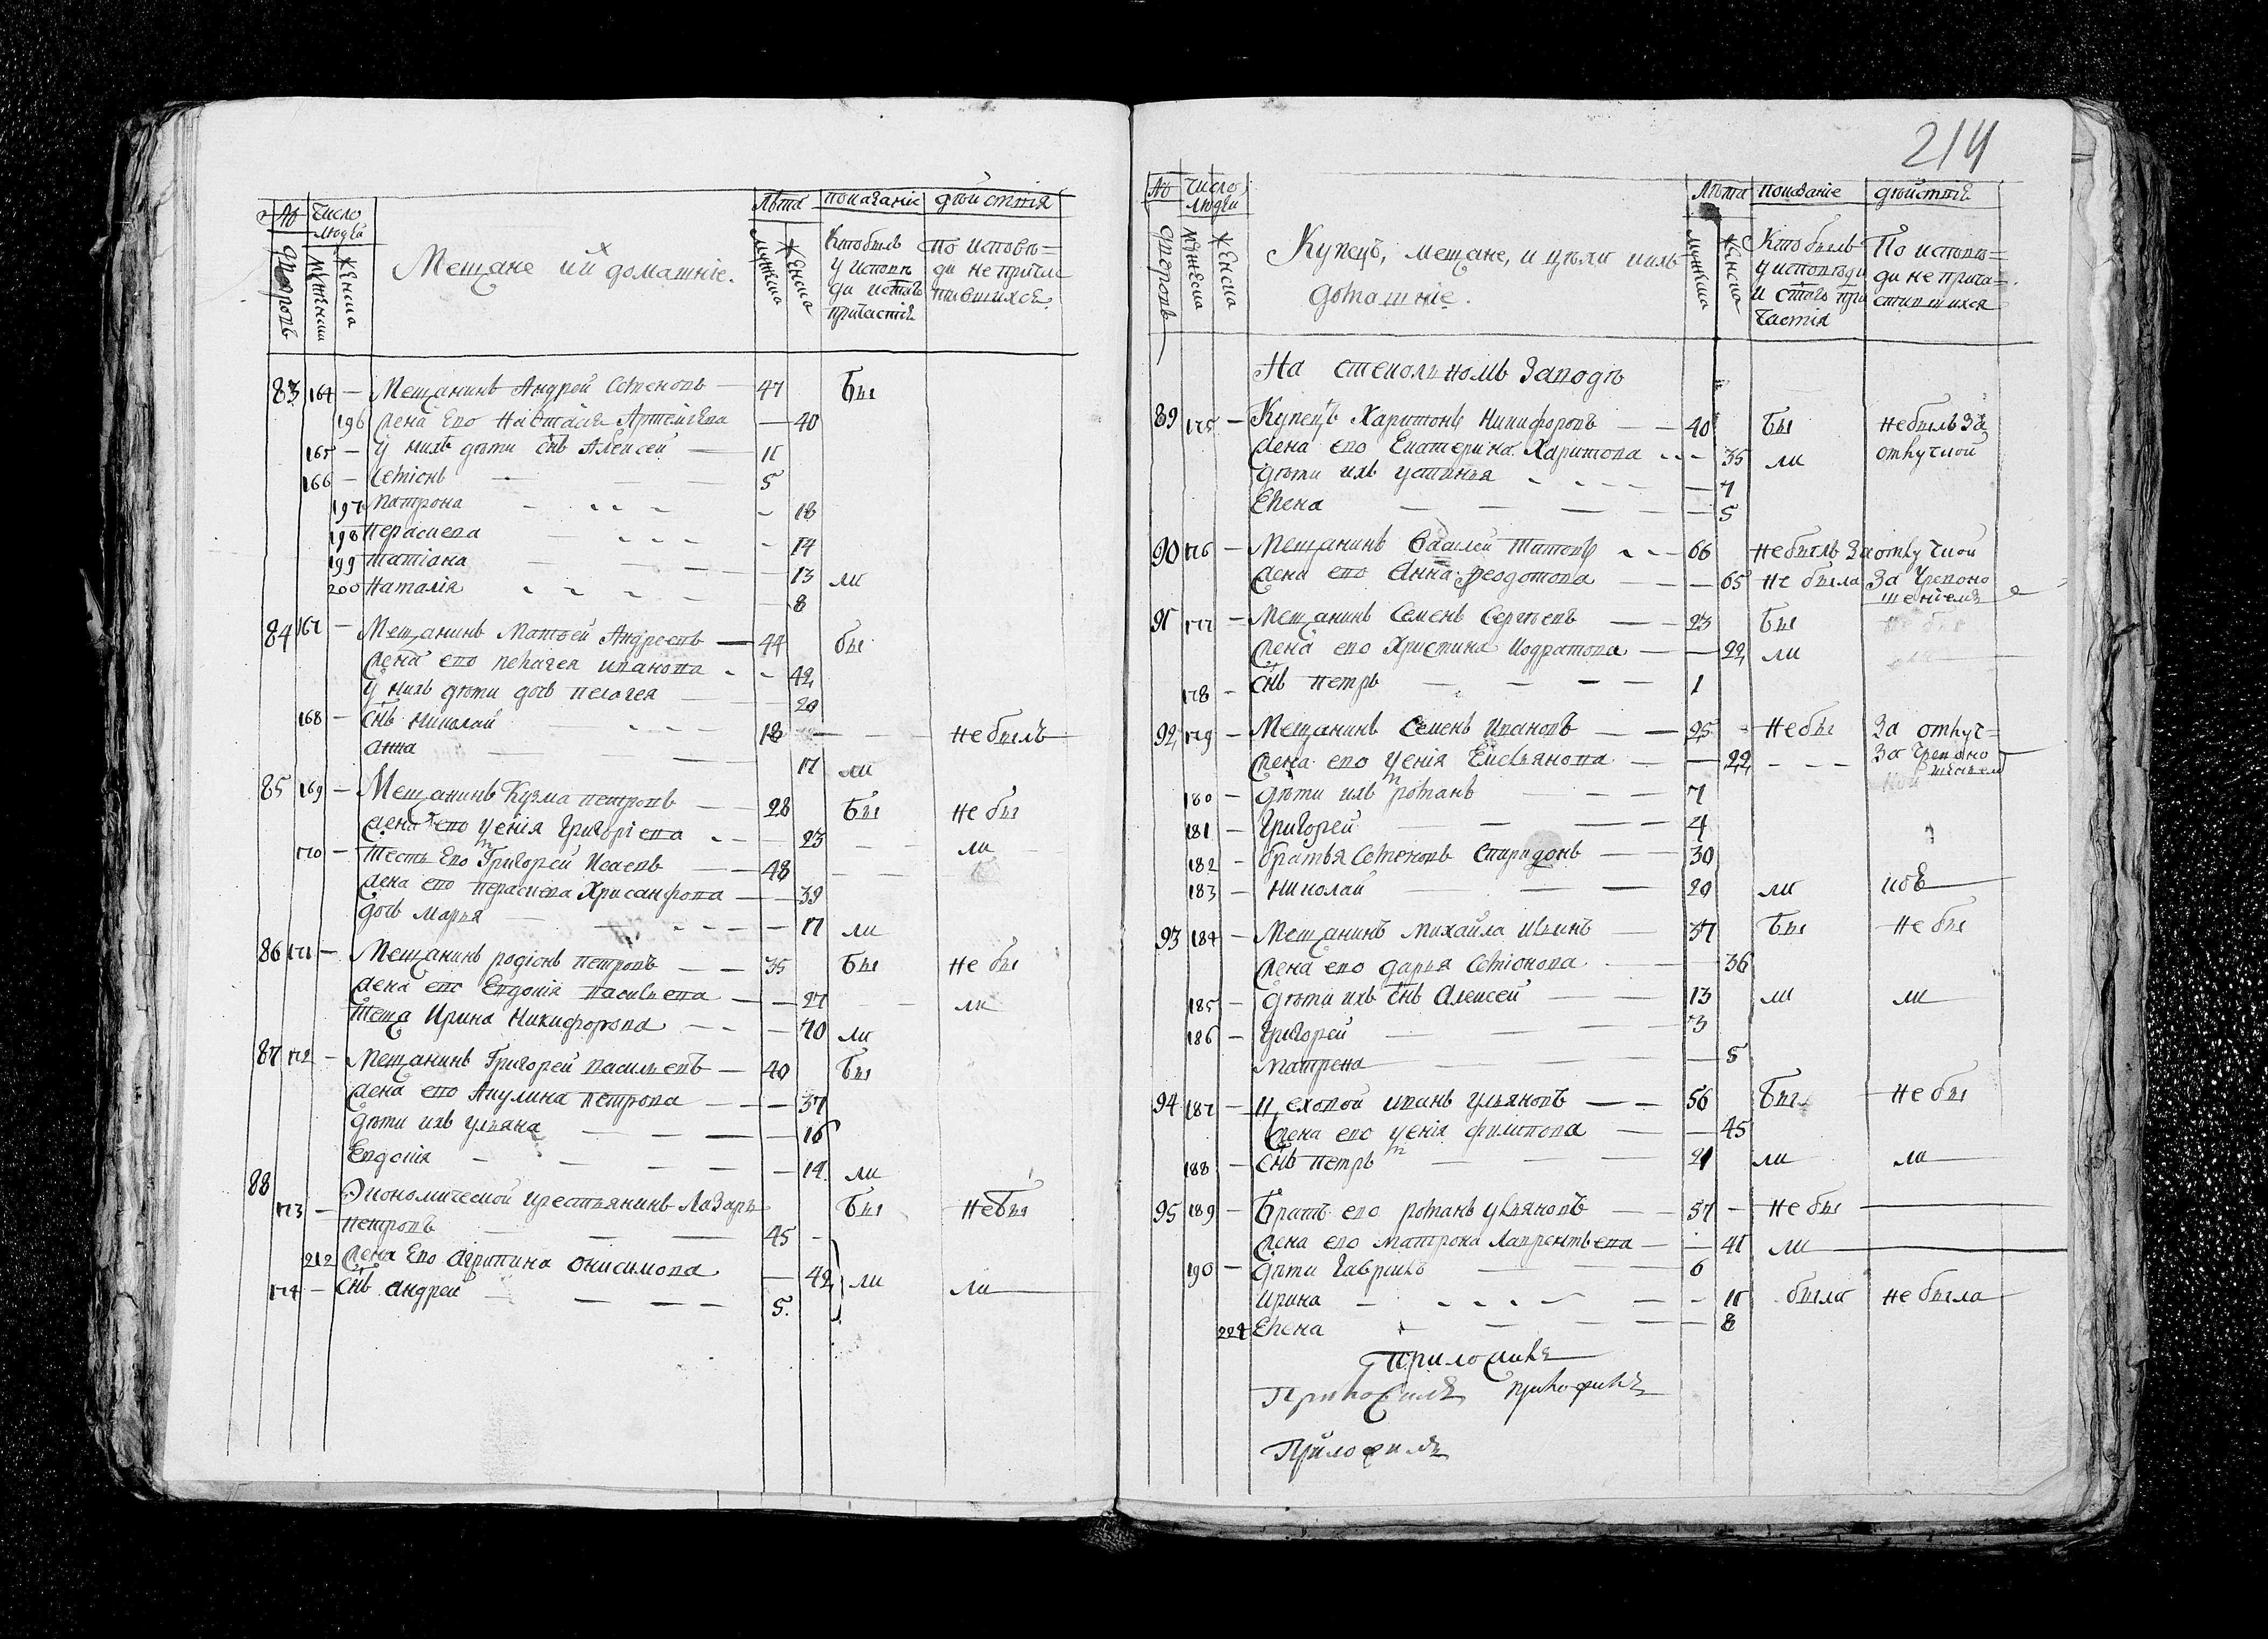 № число людей
дворовъ мужеска женска
Мещане и ихъ домашніе.
лѣта
мужеска женска
показаніе дѣйствія
Кто былъ у исповѣди и стаго причастія
по исповѣди не причастившихся
83 164 — Мещанинъ Андрей Семеновъ — 47 Бы
196 жена его Настасія Артемьева — 40
165 — у нихъ дѣти снъ Алексей — 11
166 — Семіонъ — 5
197 матрона — 18
198 пераскева — 14
199 татіана — 13 ли
200 Наталія — 8
84 167 — Мещанинъ Матвей Андреевъ — 44 бы
жена его пелагея иванова — 42
у нихъ дѣти дочь пелагея — 20
168 — Снъ николай — 18 — не былъ
анна — 17 ли
85 169 — Мещанинъ Кузма петровъ — 28 Бы не бы
жена его Ксенія Григоріева — 23 — ли
170 — Тесть Его Григорей Исаевъ — 48
жена его пераскева Хрисанфова — 39
дочь марья — 17 ли
86 171 — Мещанинъ родіонъ петровъ — 35 Бы не бы
жена его Евдокія васильева — 27 — ли
Теща Ирина Никифорова — 70 ли
87 172 — Мещанинъ Григорей васильевъ — 40 Бы
жена его Акулина петрова — 37
дѣти ихъ ульяна — 16
Евдокія — 14 ли
88 173 — Экономической крестьянинъ Лазарь Бы не бы
петровъ — 45 —
212 жена Его агрипина онисимова — 42 ли ли
174 — Снъ андрей — 5.
214
№ число людей
дворовъ мужеска женска
Купецъ, мещане, и цѣхи ихъ
домашніе.
Лѣта
мужеска женска
показаніе дѣйствіе
Кто былъ у исповѣди и стаго причастія
По исповѣди не причастившихся
На стекольномъ Заводѣ
89 175 — Купецъ Харитонъ Никифоровъ — 40 Бы не былъ за
жена его Екатерина Харитова — 35 ли отлучкой
дѣти ихъ устинья — 7
Елена — 5
90 176 — Мещанинъ Василей Титовъ — 66 не былъ За отлучкой
жена его Анна Феодотова — 65 не была За Чревоно
шеніемъ
91 177 — Мещанинъ Семенъ Сергѣевъ — 23 Бы
жена его Христина Кодратова — 22 ли
178 — снъ петръ — 1
92 179 — Мещанинъ Семенъ Ивановъ — 25 — Не бы За отлуч=
жена его Ксенія Емельянова — 22 — За Чревоно
шеніем
180 — дѣти ихъ романъ — 7
181 — Григорей — 4
182 — братья Семеновъ Спиридонъ — 30
183 — николай — 20 ли
93 184 — Мещанинъ Михайла Ильинъ — 37 Бы Не бы
жена его дарья Семіонова — 36
185 — дѣти ихъ снъ Алексей — 13 ли ли
186 — Григорей — 3
матрена — 5
94 187 — Цеховой иванъ ульяновъ — 56 Бы Не бы
жена его Ксенія филипова — 45
188 — снъ петръ — 21 ли ли
95 189 — Братъ его романъ ульяновъ — 57 — Не бы
жена его матрона Лаврентьева — 41 ли
190 — дѣти Гаврилъ — 6
ирина — 11 была не была
224 Елена — 8